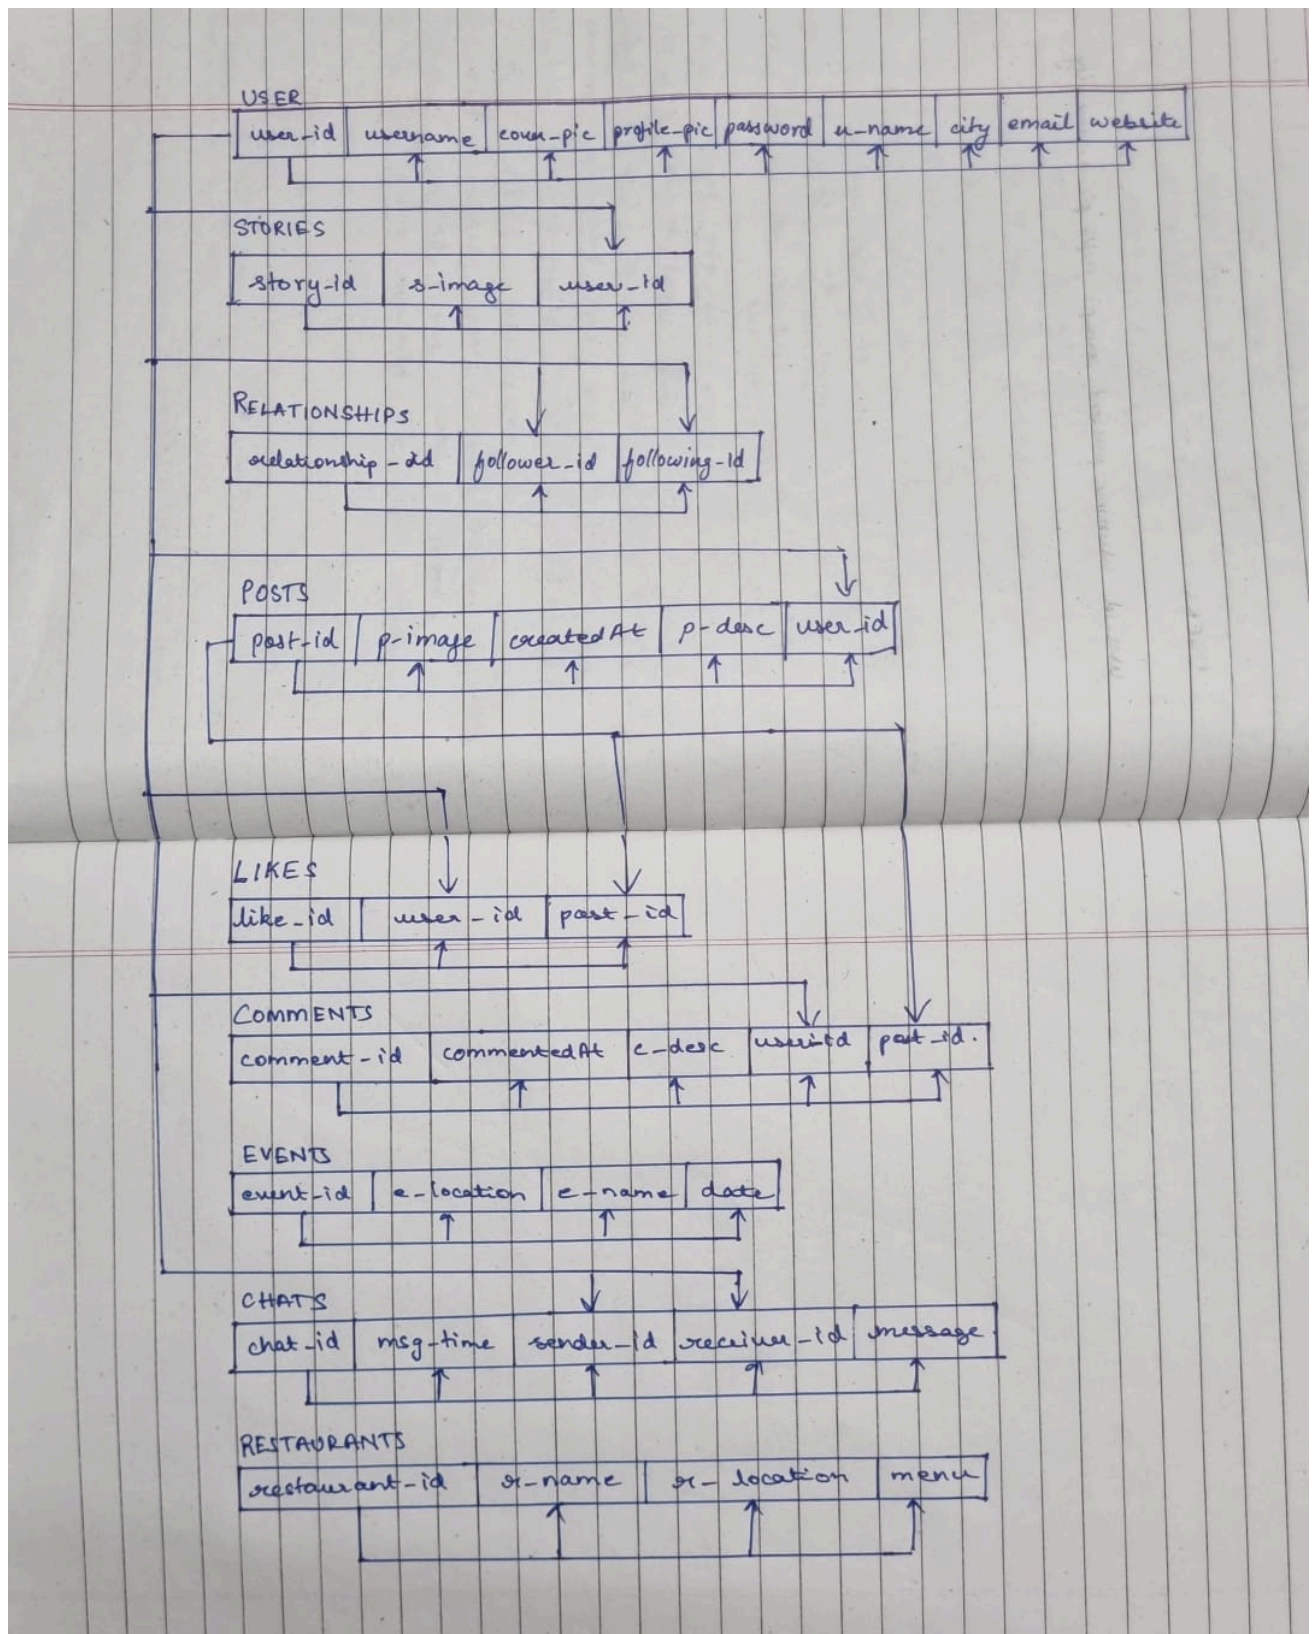 USER
user_id username cover_pic profile_pic password u_name city email website
STORIES
story_id s_image user_id
RELATIONSHIPS
relationship_id follower_id following_id
POSTS
post_id p_image createdAt p_desc user_id
LIKES
like_id user_id post_id
COMMENTS
comment_id commentedAt c_desc user_id post_id.
EVENTS
event_id e_location e_name date
CHATS
chat_id msg_time sender_id receiver_id message
RESTAURANTS
restaurant_id r_name r_location menu